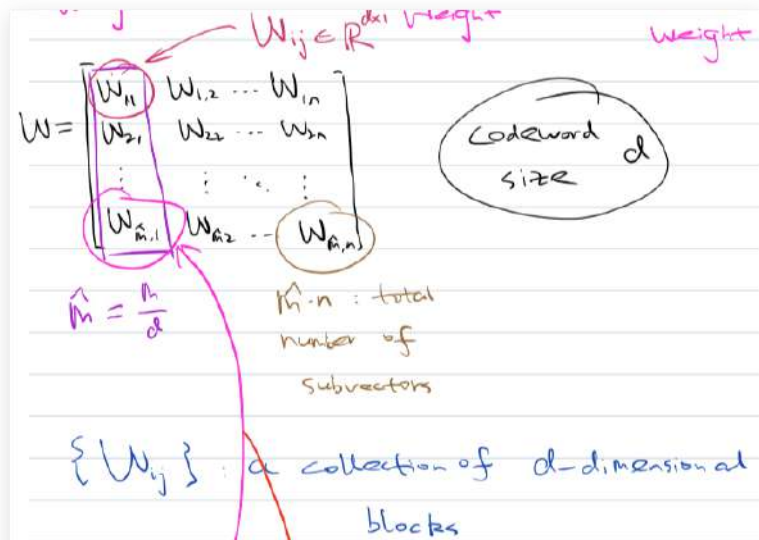 W_{ij} ∈ ℝ^{d×1} weight
weight
W = [ W_{11} W_{1,2} ... W_{1n}
W_{2,1} W_{22} ... W_{2n}
⋮ ⋮ ⋱ ⋮
W_{m̂,1} W_{m̂2} ... W_{m̂,n} ]
codeword d
size
m̂ = m/d
m̂·n : total
number of
subvectors
{W_{ij}} : a collection of d-dimensional
blocks